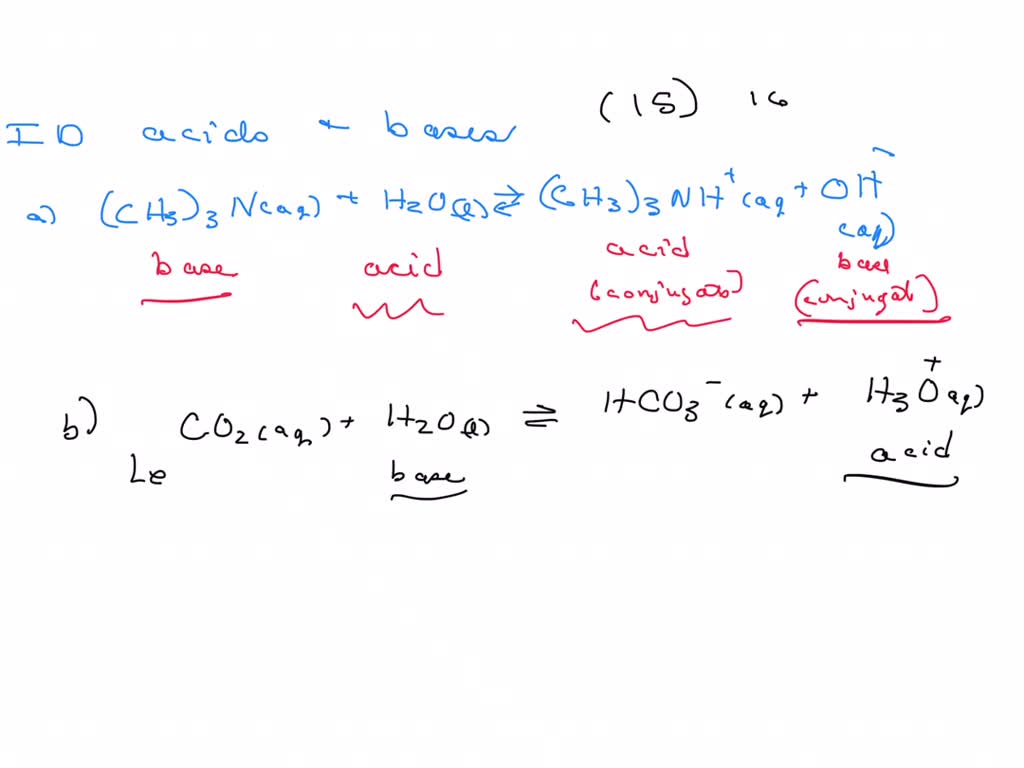 (15) 16
ID acids + bases
a) (CH3)3N(aq) + H2O(l) ⇌ (CH3)3NH+(aq + OH-
(aq)
base acid acid base
(conjugate) (conjugate)
b) CO2(aq) + H2O(l) ⇌ HCO3-(aq) + H3O+aq)
Le base acid